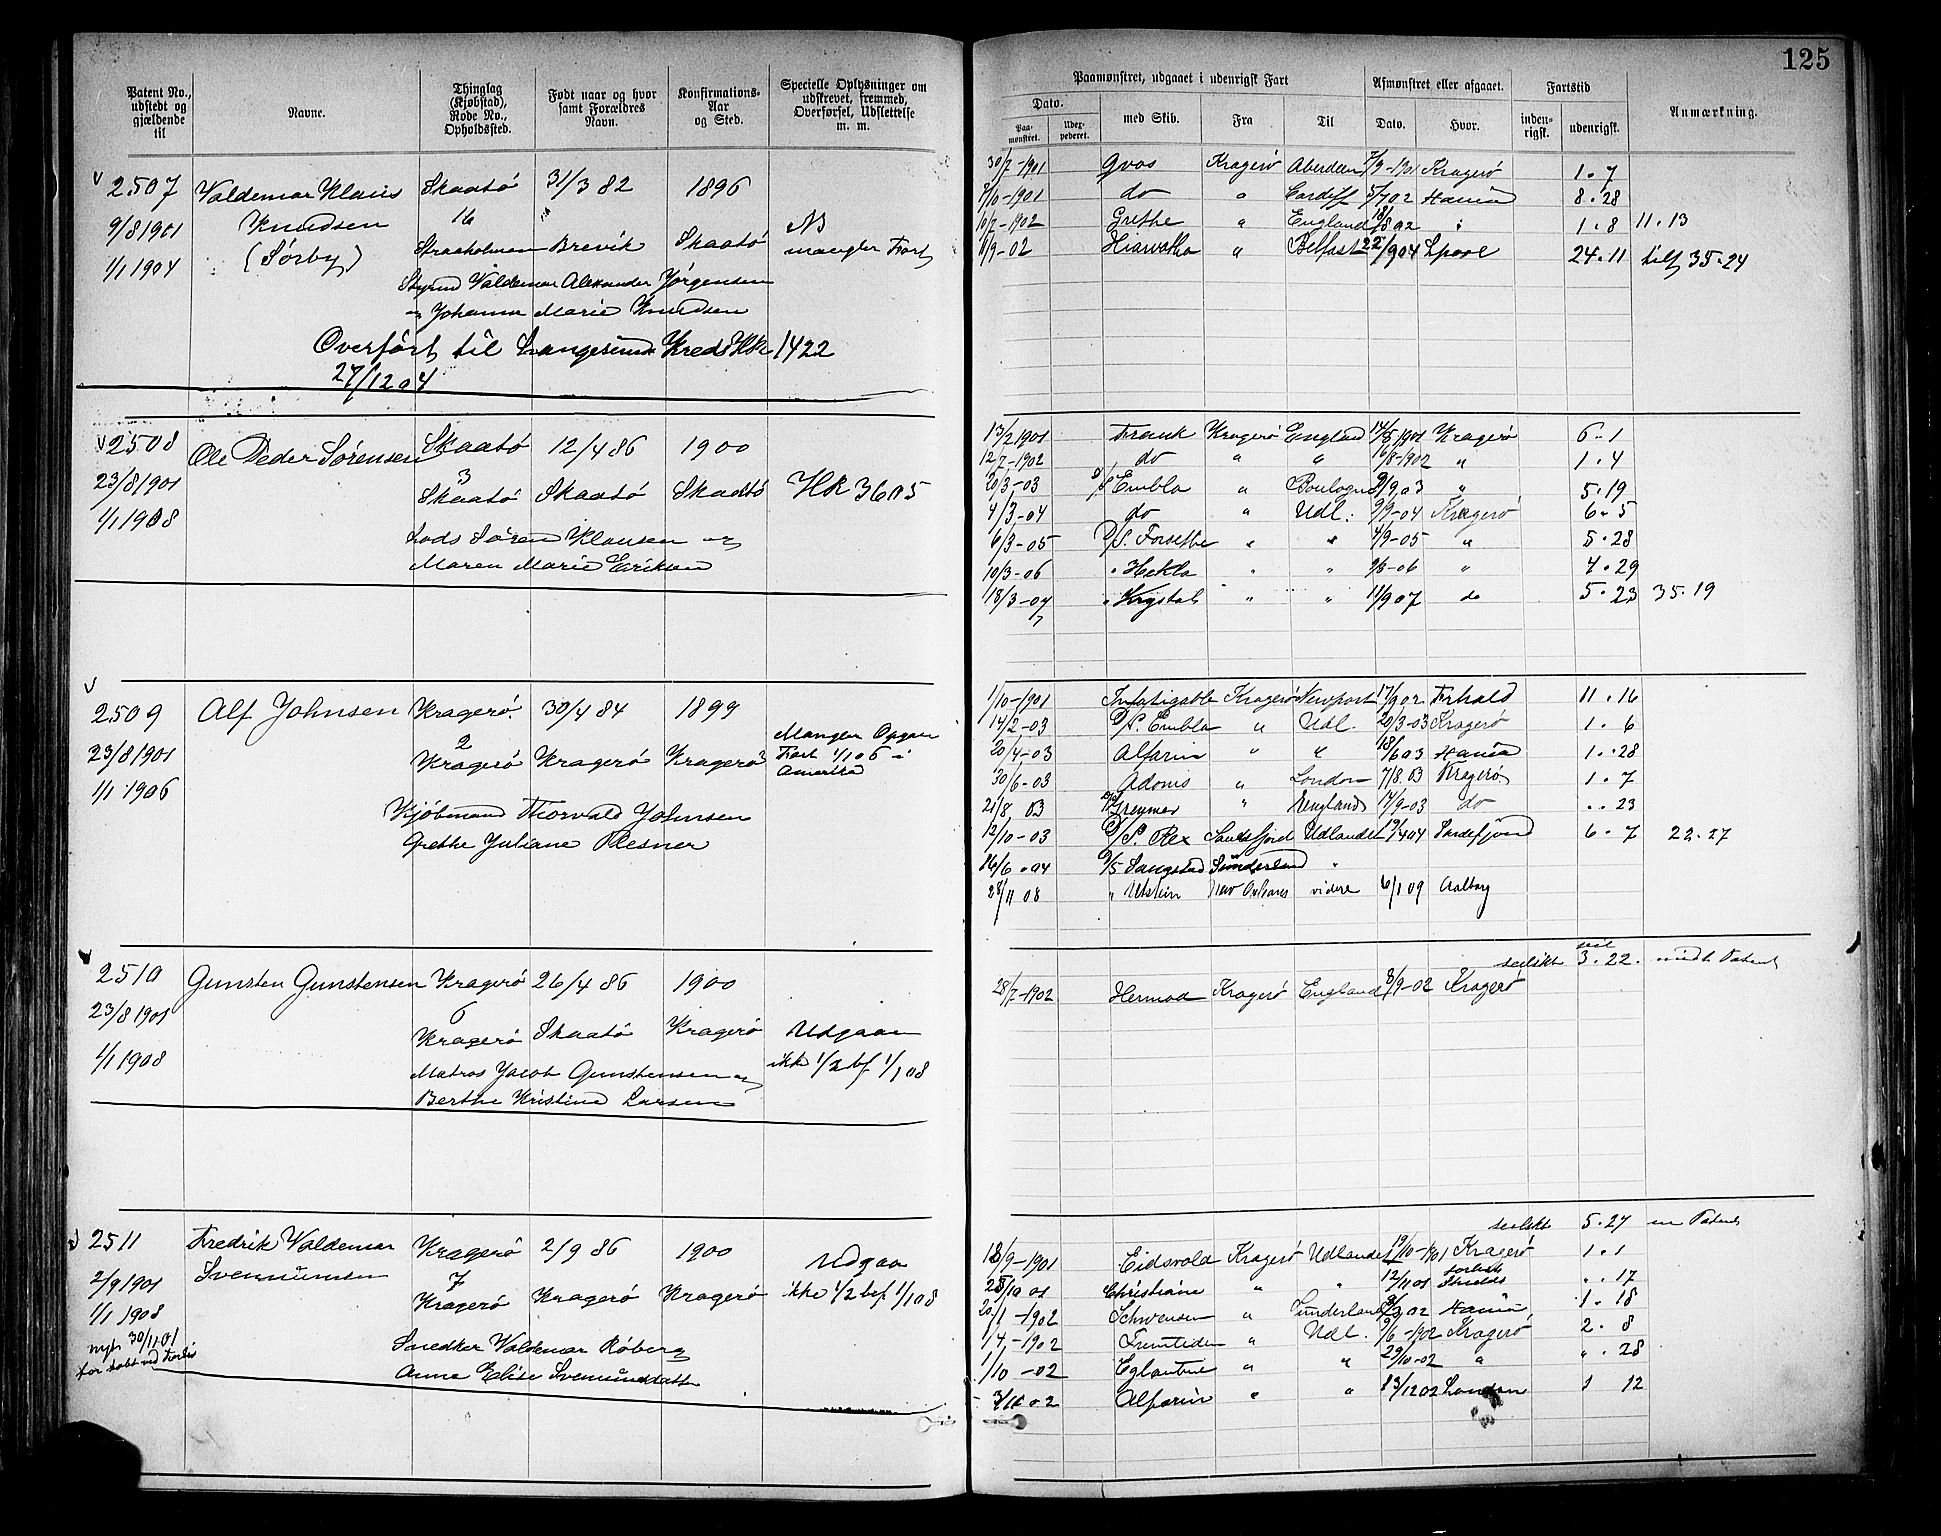 125
Patent No., udstedt og gjældende til
Navne.
Thinglag (Kjøbstad), Rode No., Opholdssted.
Født naar og hvor samt Forældres Navn.
Konfirmations-Aar og Sted.
Specielle Oplysninger om udskrevet, fremmed, Overførsel, Udslettelse m. m.
Paamønstret, udgaaet i udenrigsk Fart
Afmønstret eller afgaaet.
Fartstid
Anmærkning.
Dato.
Paa-mønstret.
Udex-pederet.
med Skib.
Fra
Til
Dato.
Hvor.
inden-rigsk.
udenrigsk.
2507 Valdemar Klaus Skaatö 31/3 82 1896
9/8 1901 Knudsen 16 NB
1/1 1904 (Sørby) Straaholmen Brevik Skaatö mangler Fart
Styrmd Valdemar Alexander Jörgensen
og Johanna Marie Knudsen
Overfört til Langesund Kreds HR 1422
27/12 04
30/7-1901 Gvos Kragerö Aberdeen 7/9-1901 Kragerö 1.7
8/10-1901 do " Cardiff 5/7 02 Havna 8.28
10/7-1902 Grethe " England 18/8 02 " 1.8 11.13
11/9-02 Hiawatha " Belfast 22/9 04 Lpool 24.11 tils 35.24
2508 Ole Peder Sørensen Skaatö 12/4 86 1900
23/8 1901 3
1/1 1908 Skaatö Skaatö Skaatö HR 3605
Lods Sören Klausen og
Maren Marie Eriksen
13/2 1901 Frank Kragerö England 14/8 1901 Kragerö 6.1
12/7-1902 do " " 16/8-1902 " 1.4
20/3-03 D/S Embla " Boulogne 9/9 03 " 5.19
4/3-04 do " Udl. 9/9-04 Kragerö 6.5
6/3-05 D/S. Forsethe " " 4/9-05 " 5.28
10/3-06 " Hekla " " 9/8-06 " 4.29
18/3-07 " Krystal " " 11/9 07 do 5.23 35.19
2509 Alf Johnsen Kragerö. 30/4 84 1899
23/8 1901 2
1/1 1906 Kragerö Kragerö Kragerö Mangler Opgav
Fart 1/1 06 i
Amerika
Kjöbmand Thorvald Johnsen
Grethe Juliane Plesner
1/10-1901 Indefatigable Kragerö Newport 17/9 02 Fr.hald 11.16
14/2-03 D/S. Embla " Udl. 20/3-03 Kragerö 1.6
20/4-03 Alfarin " " 18/6 03 Havna 1.28
30/6-03 Adonis " London 7/8 03 Kragerö 1.7
21/8 03 Greymar " England 14/9-03 do ".23
12/10-03 D/S. Rex Sandefjord Udlandet 19/4 04 Sandefjord 6.7 22.27
16/6.04 D/S Sangstad Sunderland "
28/11 08 " Utstein New Orleans videre 6/1 09 Aalborg
2510 Gunsten Gunstensen Kragerö 26/4 86 1900
23/8 1901 6
1/1 1908 Kragerö Skaatö Kragerö Udgaar
ikke 1/2 bf 1/1 08
Matros Jacob Gunstensen og
Berthe Kristine Larsen
seilt 3.22. Patent
28/7-1902 Hermod Kragerö England 8/9-02 Kragerö
2511 Fredrik Valdemar Kragerö 2/9 86 1900
2/9 1901 Svennumsen 7 Udgaar
1/1 1908 Kragerö Kragerö Kragerö ikke 1/2 bef 1/1 08
nyt 30/11 01
fortabt ved Forlis
Snedker Valdemar Röberg
Anne Elise Svennumsdatter
5.27 Patent
18/9-1901 Eidsvold Kragerö Udlandet 19/10-1901 Kragerö 1.1
28/10 01 Christiane " " 12/11 01 forlist Shields ".17
20/1-1902 Schwensen " Sunderland 8/3 02 Havna 1.18
1/4-1902 Fremtiden " Udl. 9/6-1902 Kragerö 2.8
1/10-02 Eglantine " " 29/10-02 " ".28
3/11 02 Alfarin " " 13/12 02 London 1 12